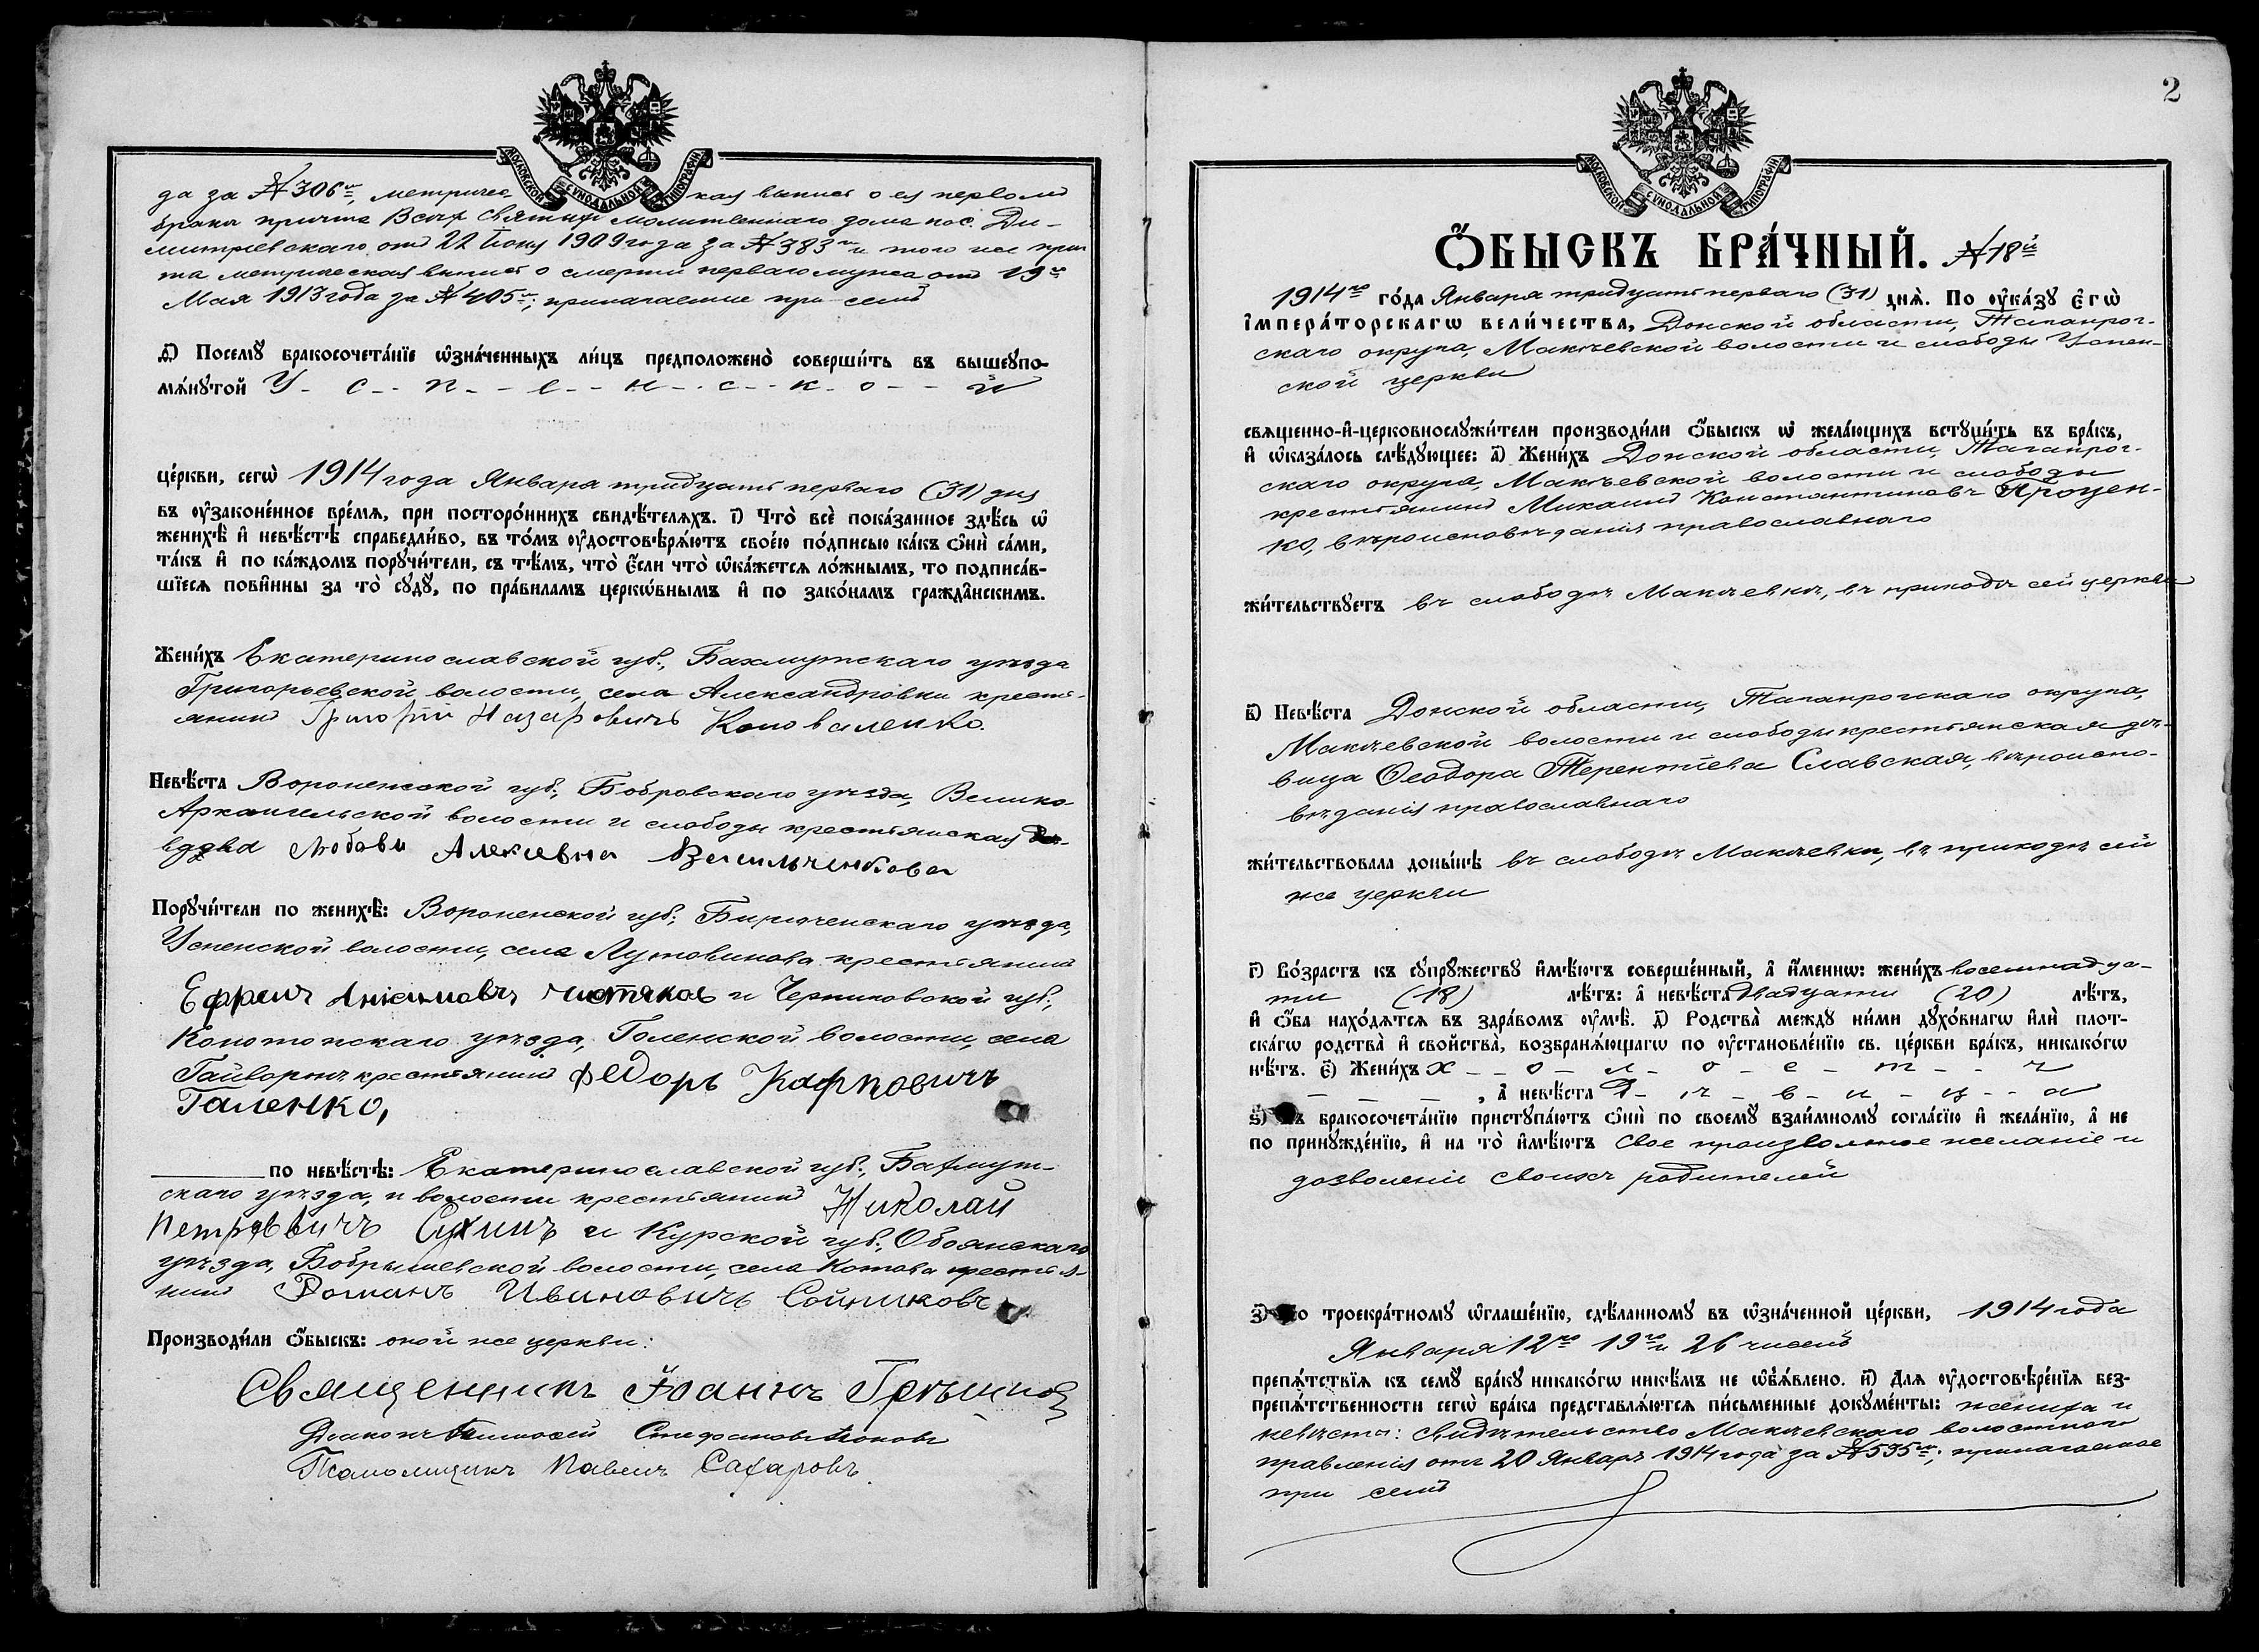 да за № 306м, метричес кая выпись о ея первомъ
бракѣ причта Всѣхъ Святыхъ молитвеннаго дома пос. Ди-
митріевскаго отъ 22 Іюня 1909 года за № 383м и того же прич
та метрическая выпись о смерти перваго мужа отъ 19го
Мая 1913 года за № 405м, прилагаемые при семъ
МОСКОВСКОЙ СѴНОДАЛЬНОЙ ТИПОГРАФІИ
д҃) Посемꙋ бракосочета́нїе ѡ҆зна́ченныхъ ли́цъ предположено̀ соверши́ть въ вышеꙋпо-
мѧ́нꙋтой У - с - п - е - н - с - к - о - й
це́ркви, сегѡ̀ 1914 года Января тридцать перваго (31) дня
въ ᲂу҆законе́нное вре́мѧ, при посторо́ннихъ свидѣ́телѧхъ. і҃) Что̀ всѐ пока́занное здѣ́сь ѡ҆
женихѣ̀ и҆ невѣ́стѣ справедли́во, въ то́мъ ᲂу҆достовѣрѧ́ютъ свое́ю по́дписью ка́къ ѻ҆нѝ са́ми,
та́къ и҆ по ка́ждомъ порꙋчи́тели, съ тѣ́мъ, что̀ є҆́сли что̀ ѡ҆ка́жетсѧ ло́жнымъ, то подписа́в-
шїесѧ пови́нны за то̀ сꙋдꙋ̀, по пра́виламъ церко́внымъ и҆ по зако́намъ гражда́нскимъ.
Жени́хъ Екатеринославской губ., Бахмутскаго уѣзда
Григорьевской волости, села Александровки кресть-
янинъ Григорій Назаровичъ Коноваленко.
Невѣ́ста Воронежской губ., Бобровскаго уѣзда, Велико-
Архангельской волости и слободы крестьянская
вдова Любовь Алексѣевна Васильченкова
Порꙋчи́тели по женихѣ̀: Воронежской губ., Бирюченскаго уѣзда,
Успенской волости, села Лутовинова крестьянинъ
Ефремъ Анисимовъ Чистяковъ и Черниговской губ.,
Конотопскаго уѣзда, Голенской волости, села
Гайворонъ крестьянинъ Федоръ Карповичъ
Галенко,
по невѣ́стѣ: Екатеринославской губ., Бахмут-
скаго уѣзда, и волости крестьянинъ Николай
Петровичъ Сухинъ и Курской губ., Обоянскаго
уѣзда, Бобрышевской волости, села Котова крестья-
нинъ Романъ Ивановичъ Сойниковъ
Производи́ли ѻ҆́быскъ: оной же церкви:
Священникъ Іоаннъ
Діаконъ Тимофей Стефановъ Поповъ
Псаломщикъ Павелъ Сахаровъ.
2
МОСКОВСКОЙ СѴНОДАЛЬНОЙ ТИПОГРАФІИ
Ѻ҆́БЫСКЪ БРА́ЧНЫЙ. № 18й
1914го го́да Января тридцать перваго (31) днѧ̀. По ᲂу҆ка́зꙋ є҆гѡ̀
і҆мпера́торскагѡ вели́чества, Донской области, Таганрог-
скаго округа, Макѣевской волости и слободы Успен-
ской церкви
свѧщенно-и҆-церковнослꙋжи́тели производи́ли ѻ҆́быскъ ѡ҆ жела́ющихъ встꙋпи́ть въ бра́къ,
и҆ ѡ҆каза́лось слѣ́дꙋющее: а҃) Жени́хъ Донской области, Таганрог-
скаго округа, Макѣевской волости и слободы
крестьянинъ Михаилъ Константиновъ Процен-
ко, вѣроисповѣданія православнаго
жи́тельствꙋетъ въ слободѣ Макѣевкѣ, въ приходѣ сей церкви
в҃) Невѣ́ста Донской области, Таганрогскаго округа,
Макѣевской волости и слободы крестьянская дѣ-
вица Ѳеодора Терентіева Славская, вѣроиспо-
вѣданія православнаго
жи́тельствовала доны́нѣ въ слободѣ Макѣевкѣ, въ приходѣ сей
же церкви
г҃) Во́зрастъ къ сꙋпрꙋ́жествꙋ и҆мѣ́ютъ соверше́нный, а҆ и҆́менно: жени́хъ восемнадца-
ти (18) лѣ́тъ: а҆ невѣ́ста двадцати (20) лѣ́тъ,
и҆ ѻ҆́ба нахо́дѧтсѧ въ здра́вомъ ᲂу҆мѣ̀. д҃) Родства̀ междꙋ ни́ми дꙋхо́внагѡ и҆лѝ плот-
ска́гѡ родства̀ и҆ сво́йства̀, возбранѧ́ющагѡ по ᲂу҆становле́нїю св. це́ркви бра́къ, никако́гѡ
нѣ́тъ. є҃) Жени́хъ х - о - л - о - с - т - ъ
, а҆ невѣ́ста д - ѣ - в - и - ц - а
ѕ҃) Къ бракосочета́нїю пристꙋпа́ютъ ѻ҆нѝ по своемꙋ̀ взаи́мномꙋ согла́сїю и҆ жела́нїю, а҆ не
по принꙋжде́нїю, и҆ на то̀ и҆мѣ́ютъ свое произвольное желаніе и
дозволеніе своихъ родителей
з҃) По троекра́тномꙋ ѡ҆глаше́нїю, сдѣ́ланномꙋ въ ѡ҆зна́ченной це́ркви, 1914 года
Января 12го 19го и 26 чиселъ
препѧ́тствїѧ къ семꙋ̀ бра́кꙋ никако́гѡ никѣ́мъ не ѡ҆б̾ѧ́влено. и҃) Длѧ ᲂу҆достовѣре́нїѧ без-
препѧ́тственности сегѡ̀ бра́ка представлѧ́ютсѧ пи́сьменные докꙋме́нты: жениха и
невѣсты: свидѣтельство Макѣевскаго волостного
правленія отъ 20 Января 1914 года за № 535м, прилагаемое
при семъ